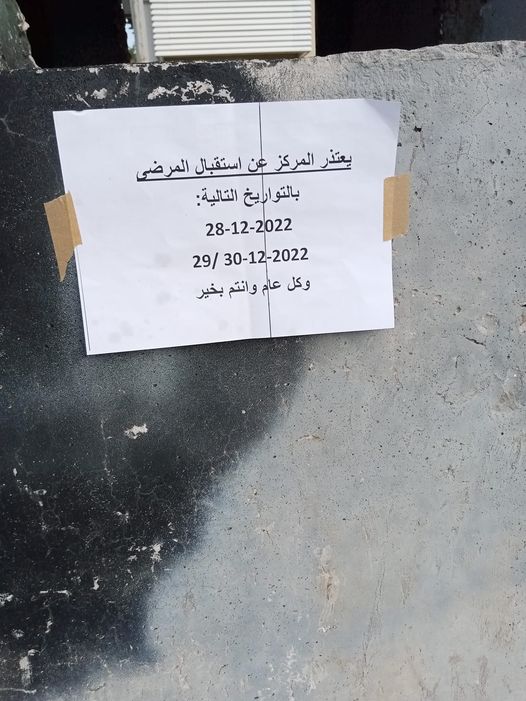 يعتذر المركز عن استقبال المرضى
بالتواريخ التالية:
28-12-2022
29/ 30-12-2022
وكل عام وانتم بخير